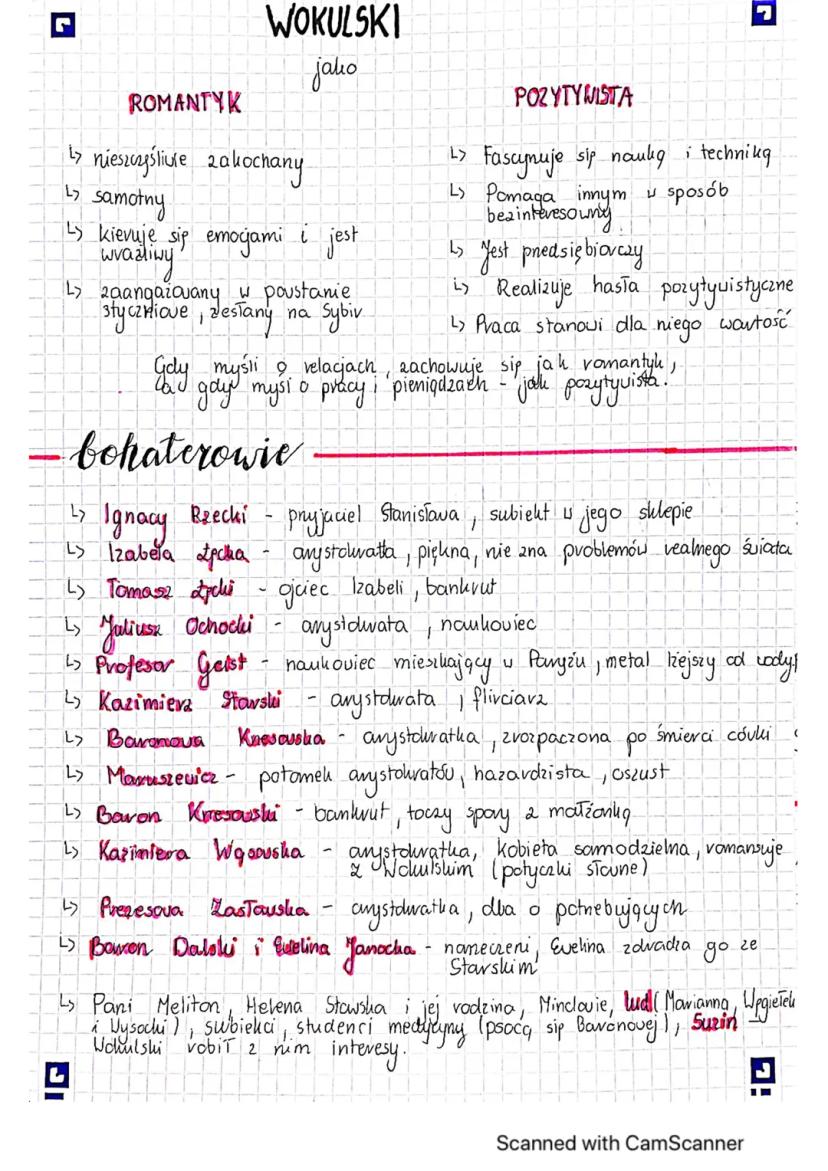 WOKULSKI
jako
ROMANTYK
↳ nieszczęśliwie zakochany
↳ samotny
↳ kieruje się emocjami i jest
wrażliwy
↳ zaangażowany w powstanie
styczniowe, zesłany na Sybir
POZYTYWISTA
↳ Fascynuje się nauką i techniką
↳ Pomaga innym w sposób
bezinteresowny
↳ Jest przedsiębiorczy
↳ Realizuje hasła pozytywistyczne
↳ Praca stanowi dla niego wartość
Gdy myśli o relacjach, zachowuje się jak romantyk,
a gdy myśli o pracy i pieniądzach - jak pozytywista.
bohaterowie
↳ Ignacy Rzecki - przyjaciel Stanisława, subiekt w jego sklepie
↳ Izabela Łęcka - arystokratka, piękna, nie zna problemów realnego świata
↳ Tomasz Łęcki - ojciec Izabeli, bankrut
↳ Juliusz Ochocki - arystokrata, naukowiec
↳ Profesor Geist - naukowiec mieszkający w Paryżu, metal lżejszy od wody
↳ Kazimierz Starski - arystokrata, flirciarz
↳ Baronowa Krzesowska - arystokratka, zrozpaczona po śmierci córki
↳ Maruszewicz - potomek arystokratów, hazardzista, oszust
↳ Baron Krzesowski - bankrut, toczy spory z małżonką
↳ Kazimiera Wąsowska - arystokratka, kobieta samodzielna, romansuje
z Wokulskim (potyczki słowne)
↳ Prezesowa Zasławska - arystokratka, dba o potrzebujących
↳ Baron Dalski i Ewelina Janocka - narzeczeni, Ewelina zdradza go ze
Starskim
↳ Pani Meliton, Helena Stawska i jej rodzina, Minclowie, lud (Marianna, Węgiełek
i Wysocki), subiekci, studenci medycyny (psocą się Baronowej), Suzin -
Wokulski robił z nim interesy.
Scanned with CamScanner